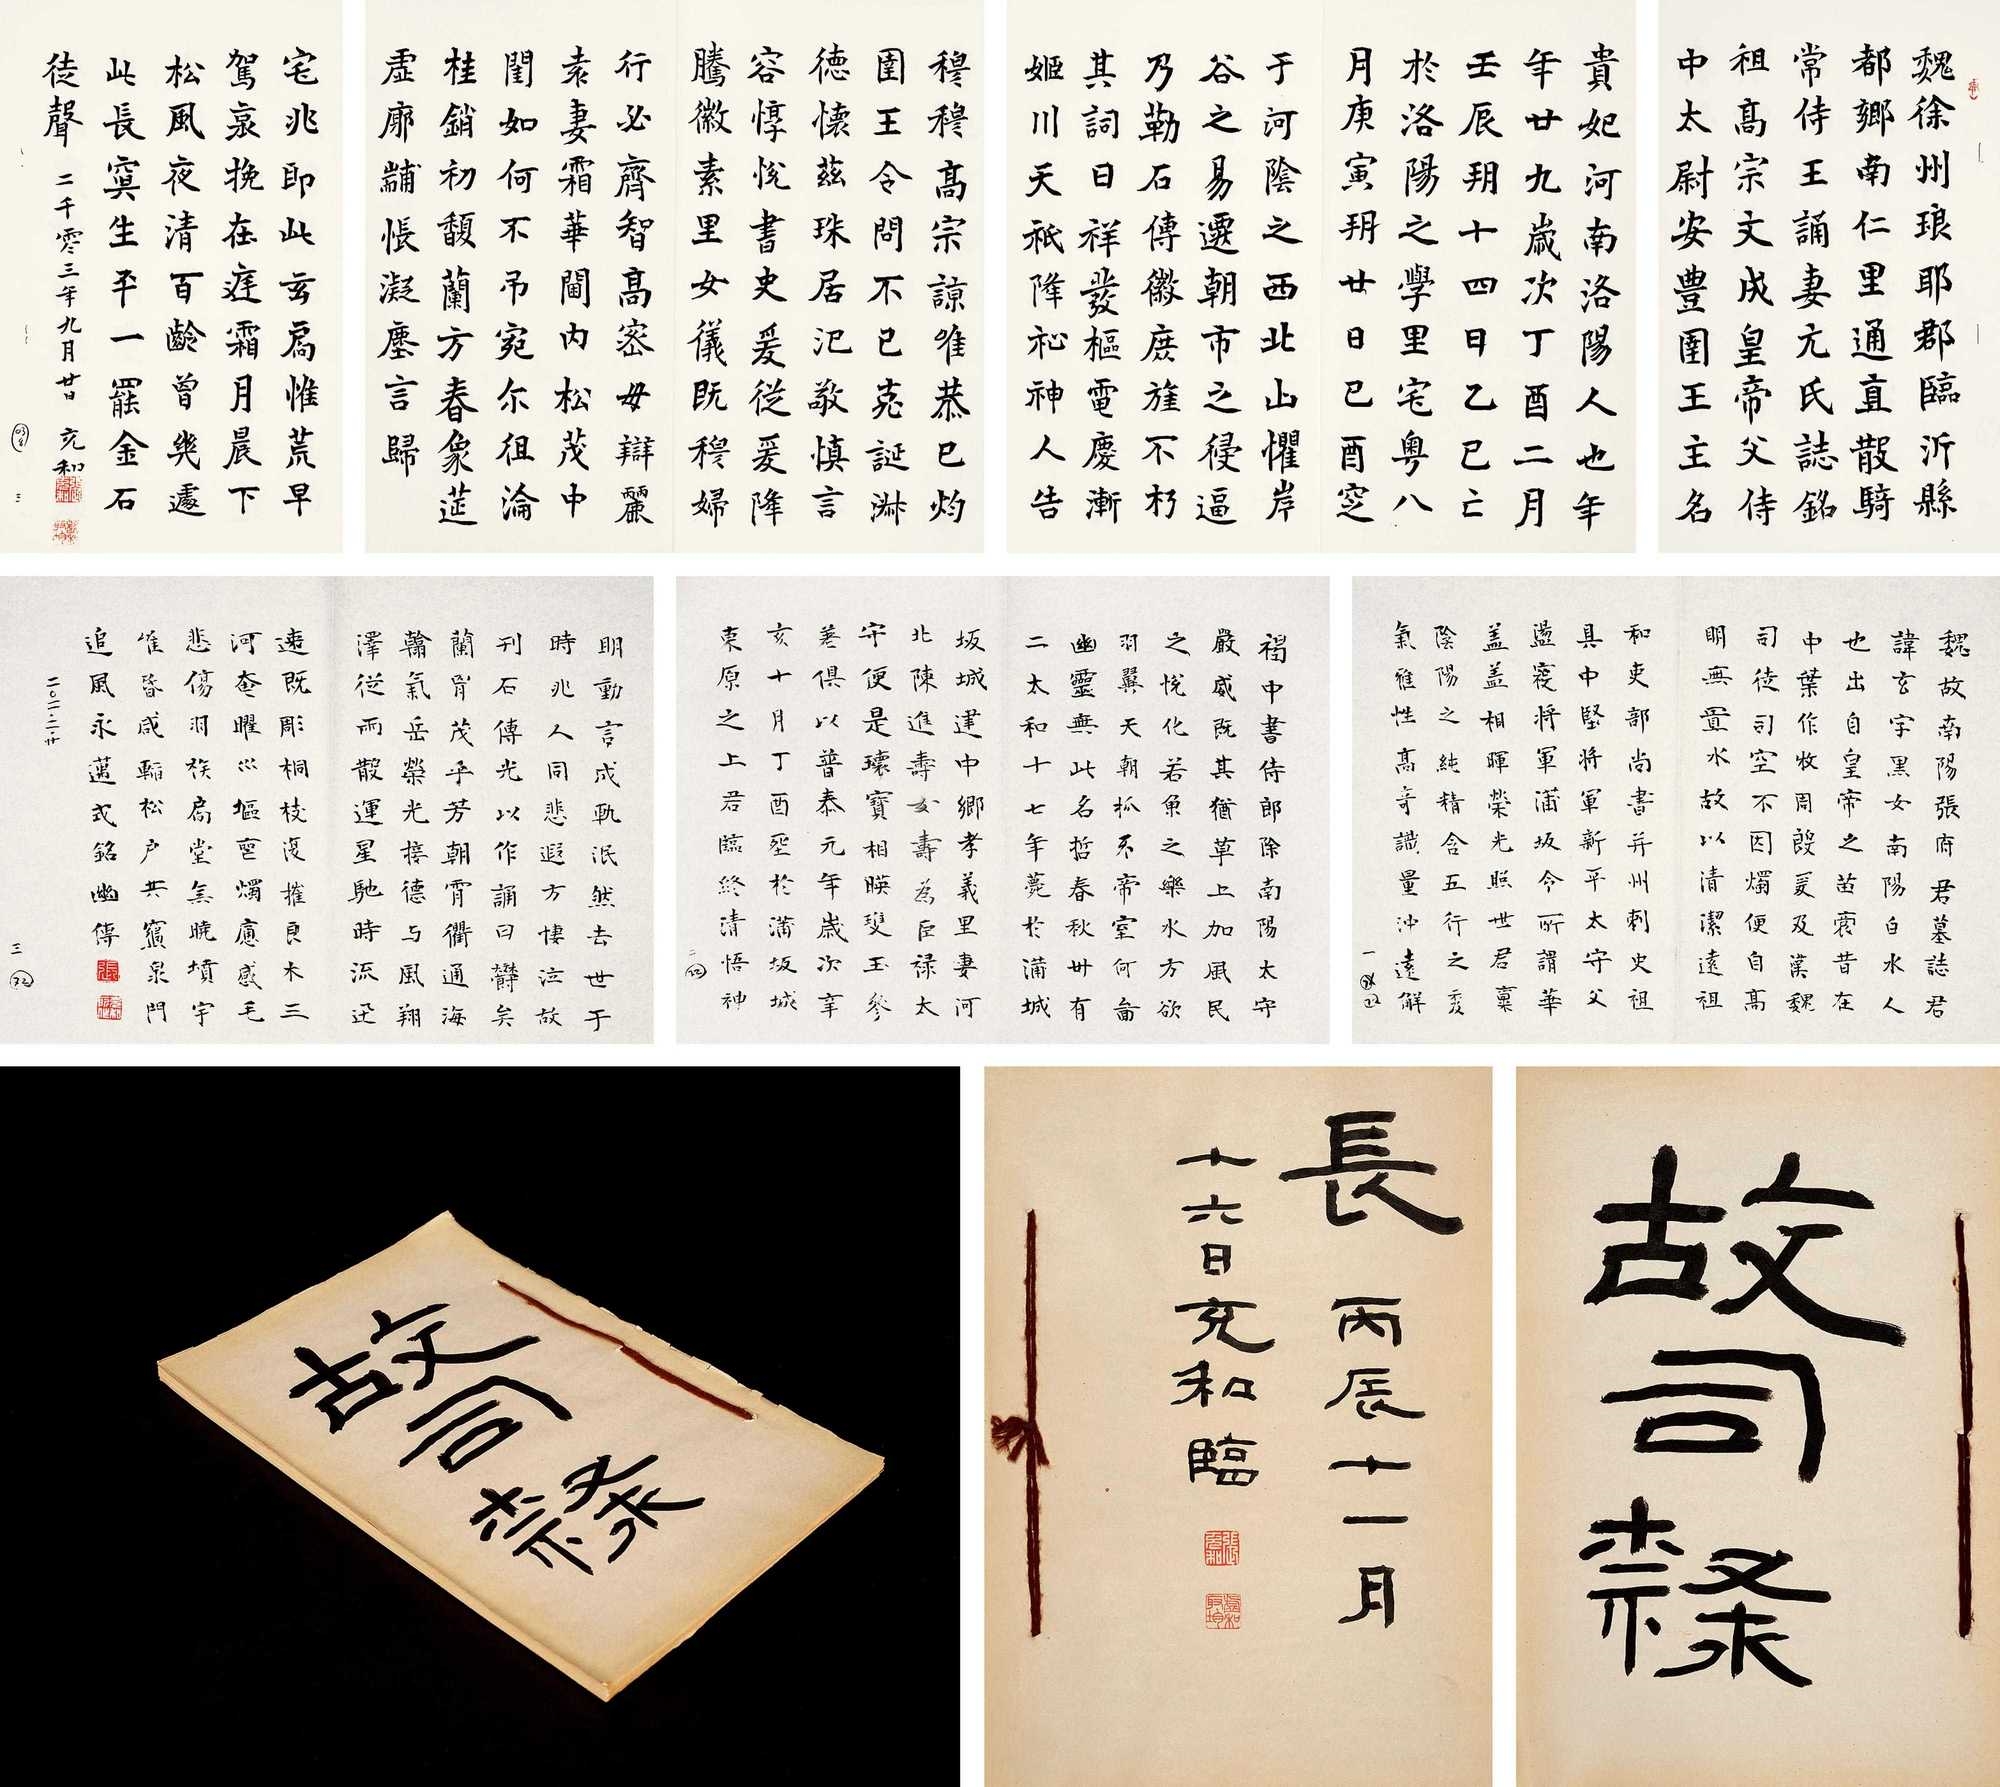 魏徐州琅耶郡臨沂縣
都鄉南仁里通直散騎
常侍王誦妻元氏誌銘
祖高宗文成皇帝父侍
中太尉安豊圉王主名
貴妃河南洛陽人也年
年廿九歲次丁酉二月
壬辰朔十四日乙巳亡
於洛陽之學里宅粵八
月庚寅朔廿日己酉窆
于河陰之西北山懼岸
谷之易遷朝市之侵逼
乃勒石傳徽庶旌不朽
其詞曰祥發樞電慶漸
姬川天祇降祉神人告
穆穆高宗諒唯恭已灼
圉王令問不已克誕淋
德懷茲珠居氾敬慎言
容惇悅書史爰從爰降
騰徽素里女儀既穆婦
行必齊智高密毋辯麗
袁妻霜華閫內松茂中
閨如何不弔宛尔徂淪
桂銷初馥蘭方春象莚
虛廓黼悵凝塵言歸
宅兆即此玄扃惟荒早
駕哀挽在庭霜月晨下
松風夜清百齡曾幾遽
此長冥生平一罷金石
徒聲 二千零三年九月廿日 充和
魏故南陽張府君墓誌君
諱玄字黑女南陽白水人
也出自皇帝之苗裔昔在
中葉作牧周殷爰及漢魏
司徒司空不因燭便自高
明無置水故以清潔遠祖
和吏部尚書并州刺史祖
具中堅將軍新平太守父
盪寇將軍蒲坂令所謂華
蓋蓋相暉榮光照世君稟
陰陽之純精含五行之
氣雅性高奇識量沖遠解
褐中書侍郎除南陽太守
嚴威既其猶草上加風民
之悅化若魚之樂水方欲
羽翼天朝抓牙帝室何啚
幽靈無此名哲春秋卅有
二太和十七年薨於蒲城
坂城建中鄉孝義里妻河
北陳進壽女壽為臣祿太
守便是瓌寶相暎雙玉參
差俱以普泰元年歲次辛
亥十月丁酉塟於蒲坂城
東原之上君臨終清悟神
明動言成軌泯然去世于
時兆人同悲遐方悽泣故
刊石傳光以作誦曰欝矣
蘭胄茂乎芳朝霄衢通海
翰氣岳榮光接德与風翔
澤從雨散運星馳時流迅
速既彫桐枝復摧良木三
河奄曜川塸罷燭應感毛
悲傷羽族扃堂無曉墳宇
唯昏咸輼松戶共寢泉門
追風永邁式銘幽傳
二〇一二·二·廿
故司隸
長 丙辰十一月
十六日充和臨
故司隸